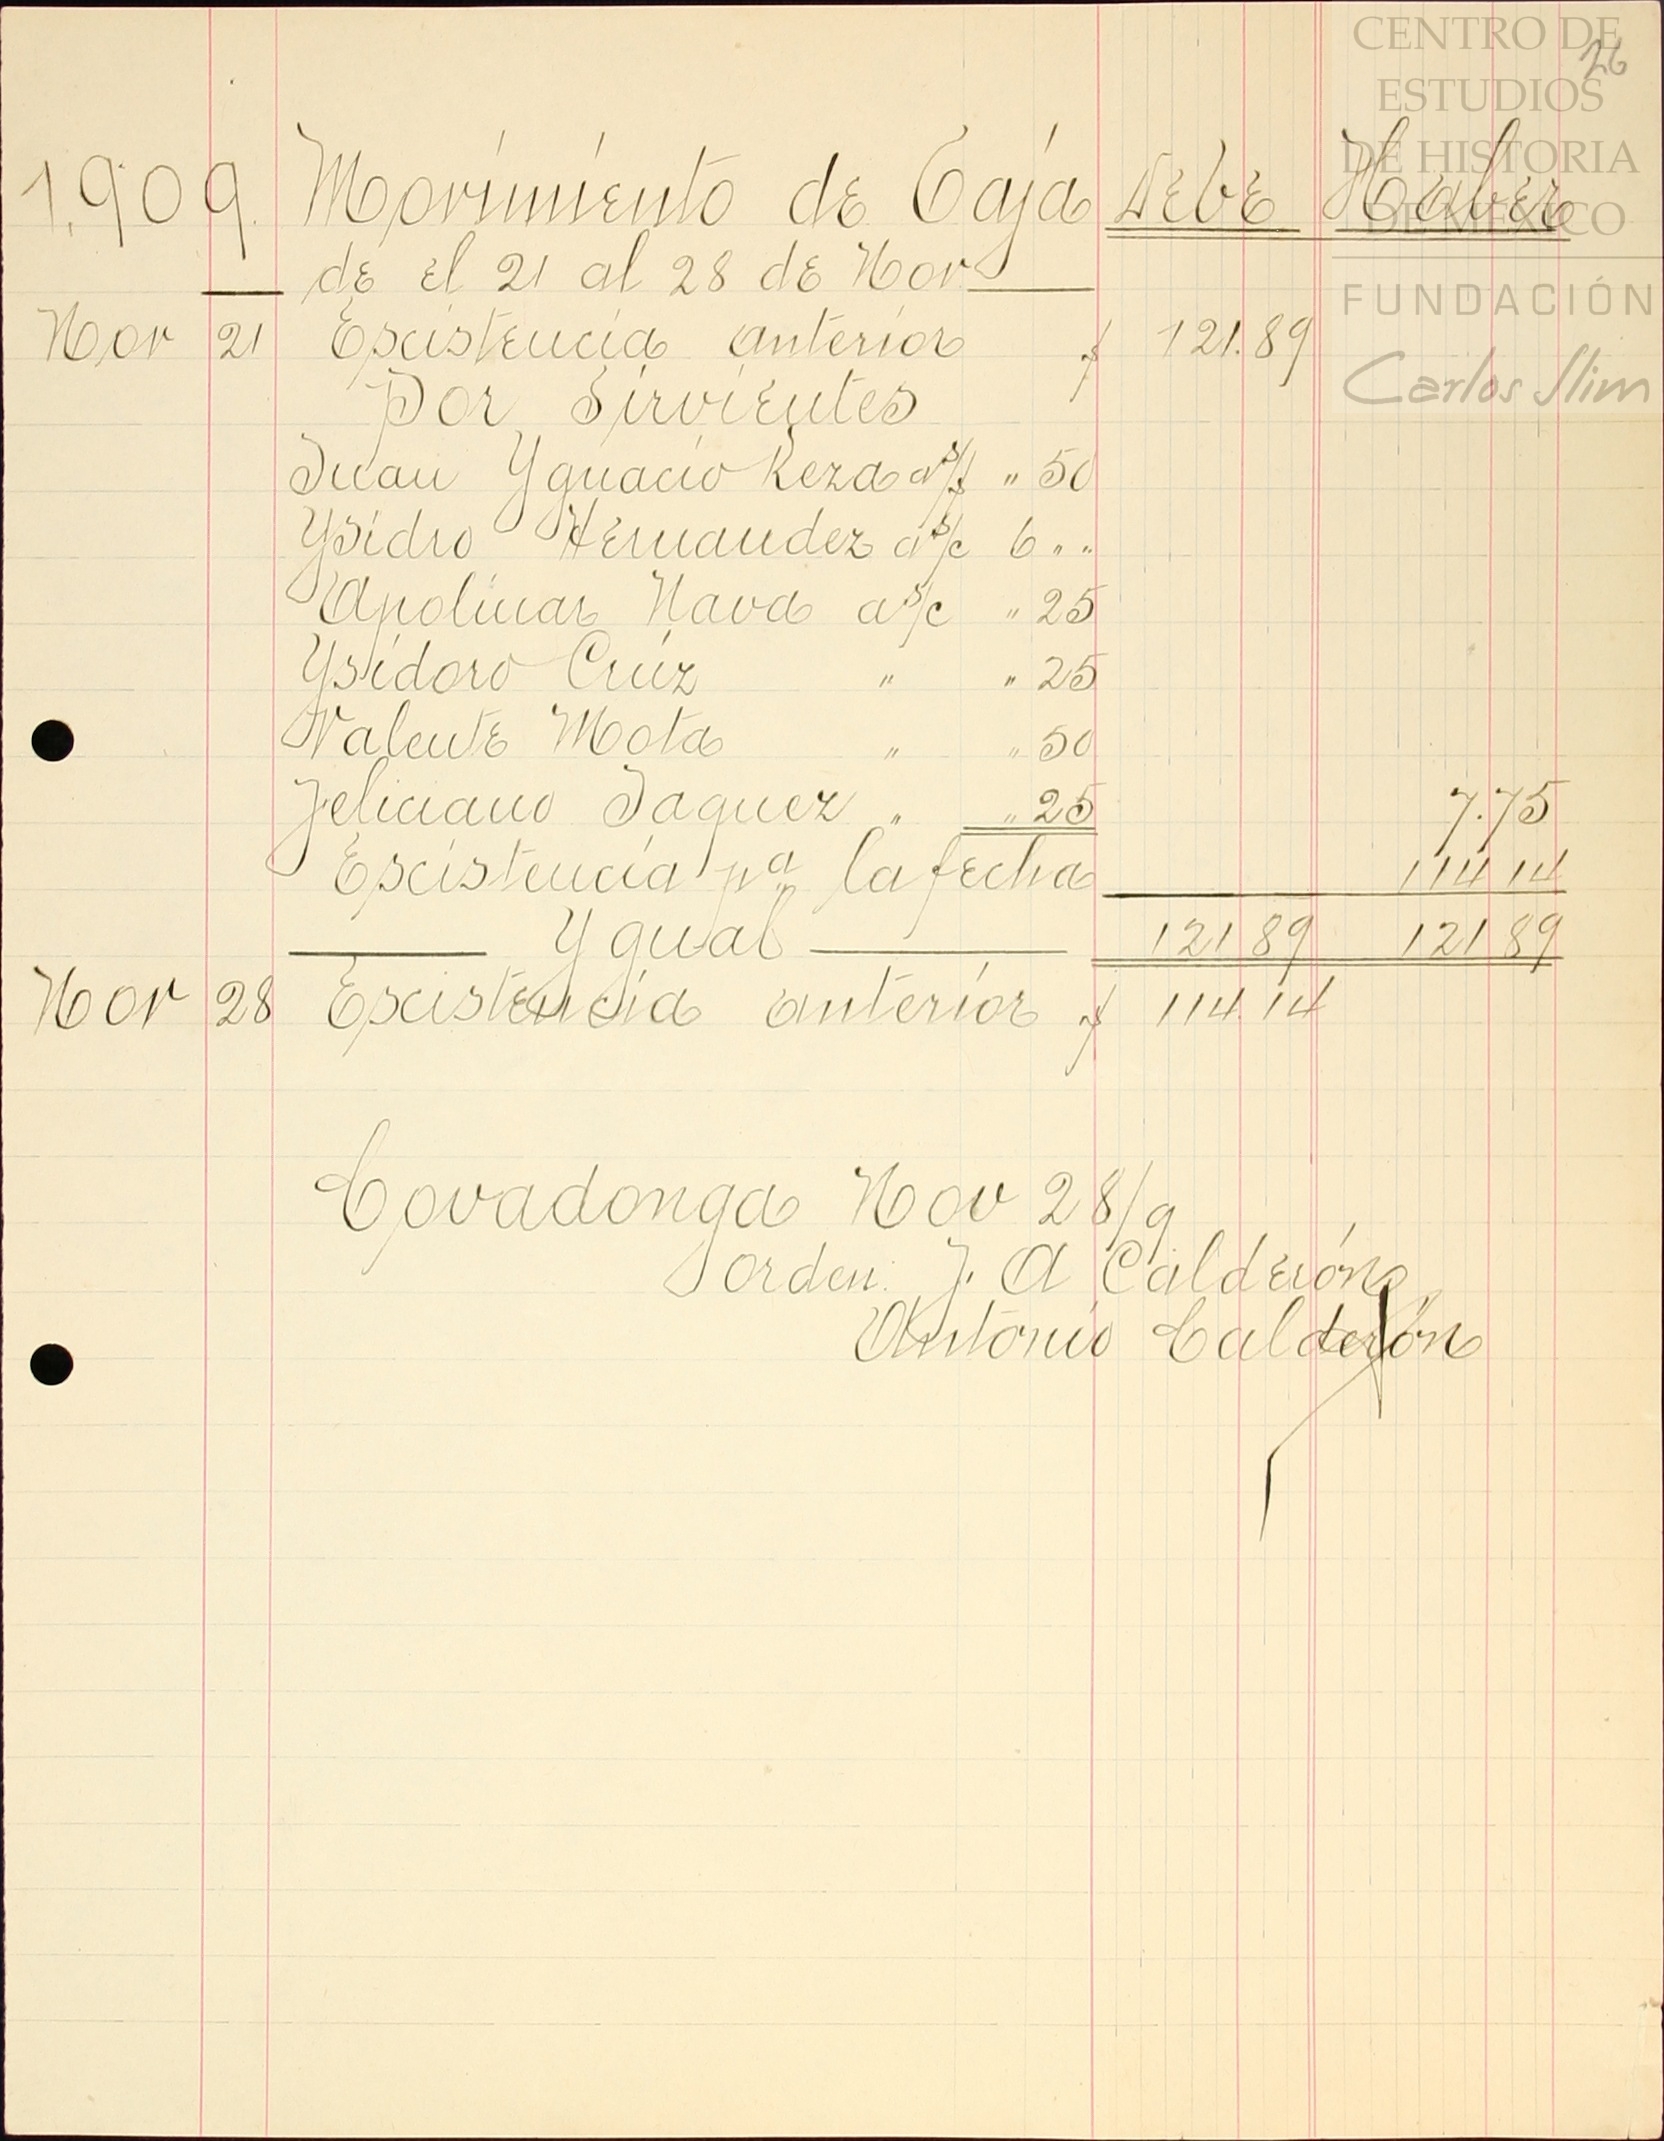 CENTRO DE
ESTUDIOS
DE HISTORIA
DE MÉXICO
FUNDACIÓN
Carlos Slim
26
1,909. Movimiento de Caja Debe Haber
de el 21 al 28 de Nov
Nov 21 Escistencia anterior $ 121.89
Por Sirvientes
Juan Ygnacio Reza a s/ " 50
Ysidro Hernandez a s/c 6 " "
Apolinar Nava a s/c " 25
Ysidoro Cruz " " 25
Valente Mota " " 50
Feliciano Jaquez " " 25 7.75
Escistencia pa la fecha 114 14
Ygual 121 89 121 89
Nov 28 Escistencia anterior $ 114.14
Covadonga Nov 28/9
orden. J. A Calderón
Antonio Calderón